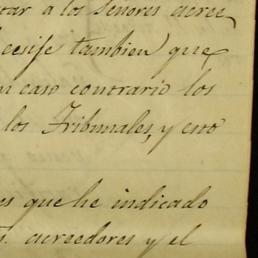 rar a los Señores acree
tambien que
en caso contrario los
los Tribunales, y eso
es que he indicado
acreedores y el